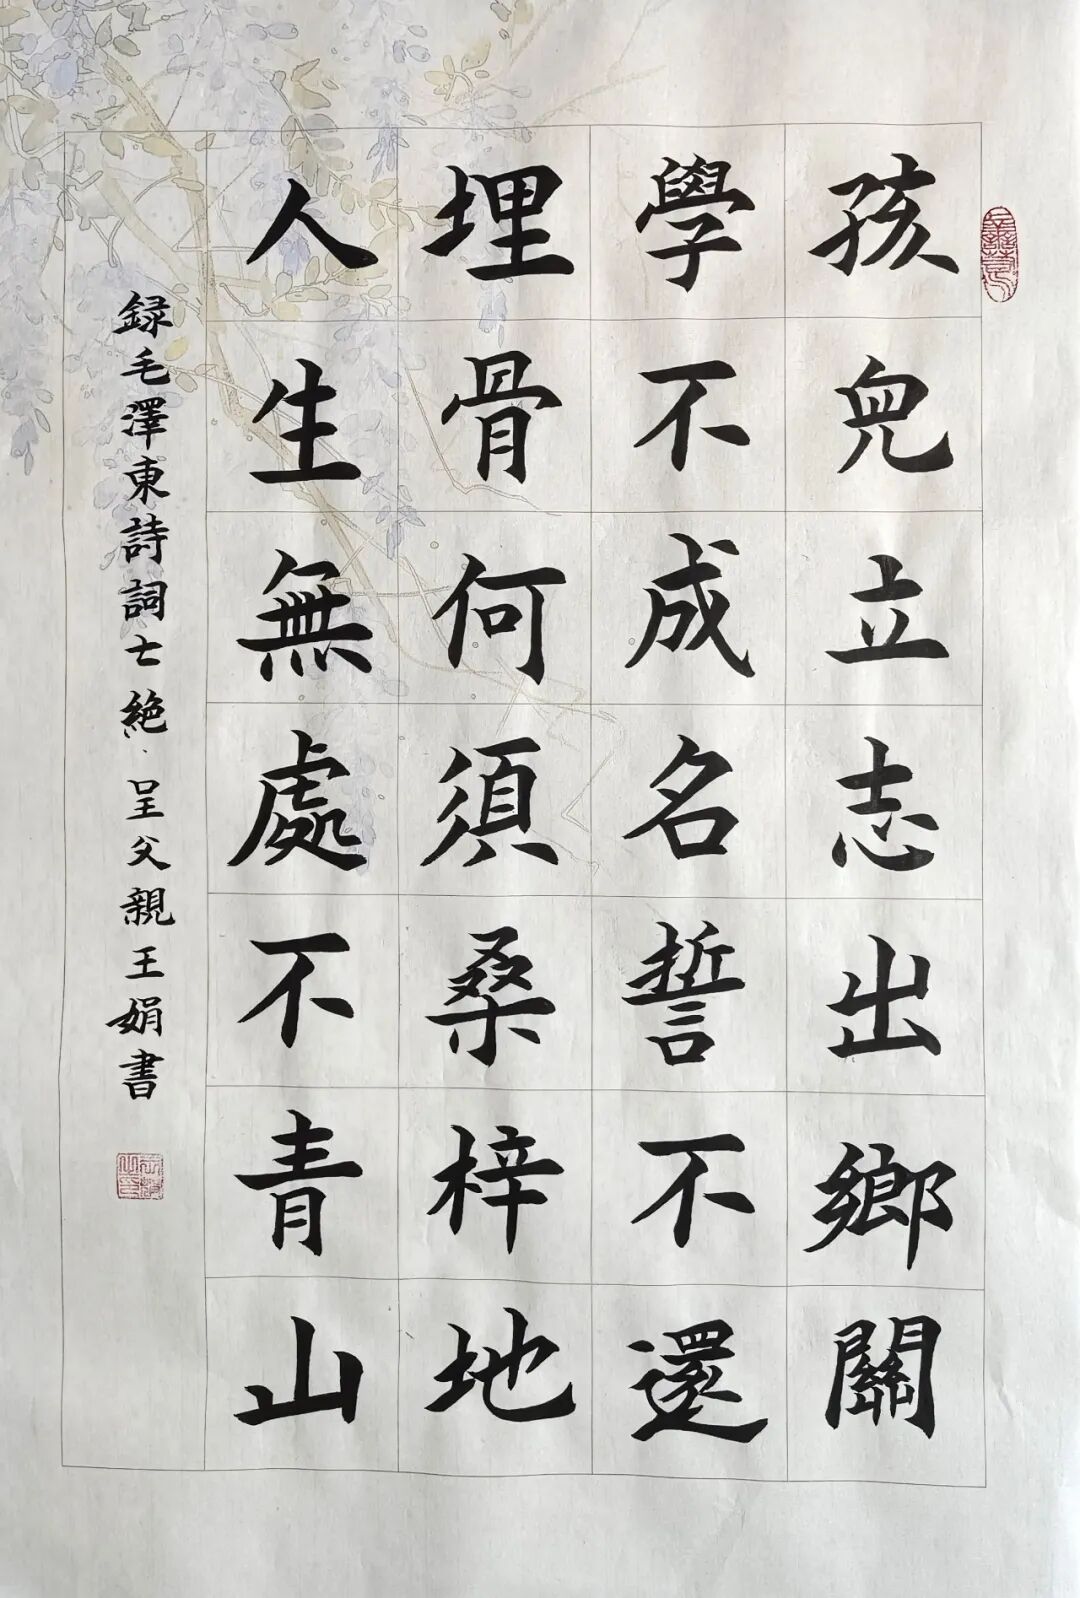 孩兒立志出鄉關
學不成名誓不還
埋骨何須桑梓地
人生無處不青山
録毛澤東詩詞七絶呈父親王娟書